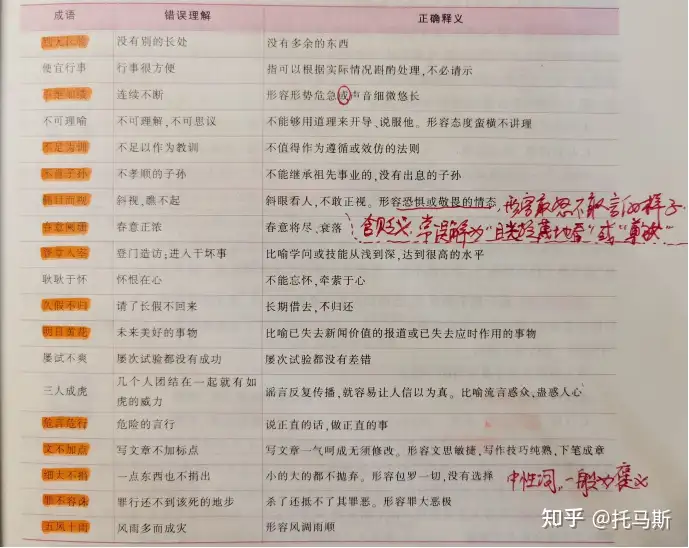 成语 错误理解 正确释义
别无长物 没有别的长处 没有多余的东西
便宜行事 行事很方便 指可以根据实际情况斟酌处理,不必请示
不绝如缕 连续不断 形容形势危急或声音细微悠长
不可理喻 不可理解,不可思议 不能够用道理来开导、说服他。形容态度蛮横不讲理
不足为训 不足以作为教训 不值得作为遵循或效仿的法则
不肖子孙 不孝顺的子孙 不能继承祖先事业的,没有出息的子孙
侧目而视 斜视,瞧不起 斜眼看人,不敢正视。形容恐惧或敬畏的情态
敢怒不敢言的样子
春意阑珊 春意正浓 春意将尽、衰落
含贬义,常误解为
登堂入室 登门造访;进入干坏事 比喻学问或技能从浅到深,达到很高的水平
耿耿于怀 怀恨在心 不能忘怀,牵萦于心
久假不归 请了长假不回来 长期借去,不归还
明日黄花 未来美好的事物 比喻已失去新闻价值的报道或已失去应时作用的事物
屡试不爽 屡次试验都没有成功 屡次试验都没有差错
三人成虎 几个人团结在一起就有如 谣言反复传播,就容易让人信以为真。比喻流言惑众,蛊惑人心
虎的威力
危言危行 危险的言行 说正直的话,做正直的事
文不加点 写文章不加标点 写文章一气呵成无须修改。形容文思敏捷,写作技巧纯熟,下笔成章
细大不捐 一点东西也不捐出 小的大的都不抛弃。形容包罗一切,没有选择
中性词,一般为褒义
罪不容诛 罪行还不到该死的地步 杀了还抵不了其罪恶。形容罪大恶极
五风十雨 风雨多而成灾 形容风调雨顺
知乎 @托马斯